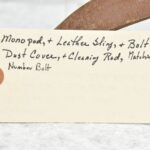 Monopod, + Leather Sling, + Bolt
Dust Cover, + Cleaning Rod, Matching
Number Bolt